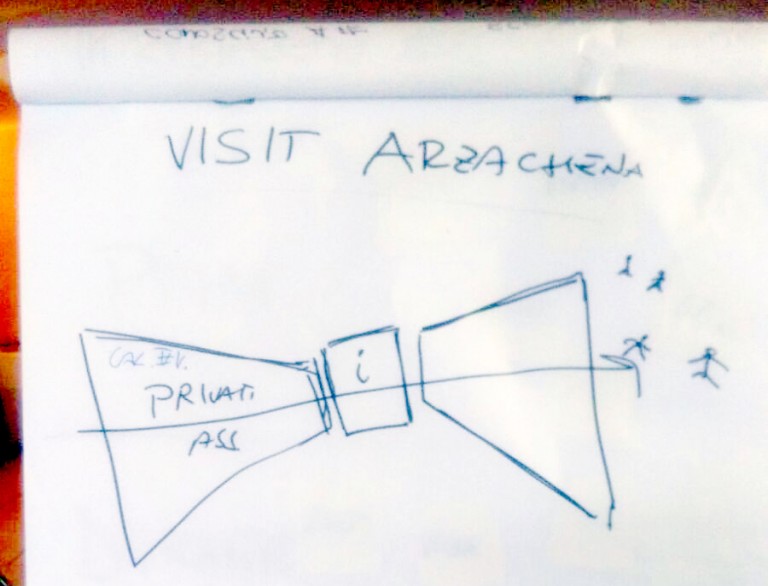 VISIT ARZACHENA
CAL. EV.
PRIVATI
ASS
i